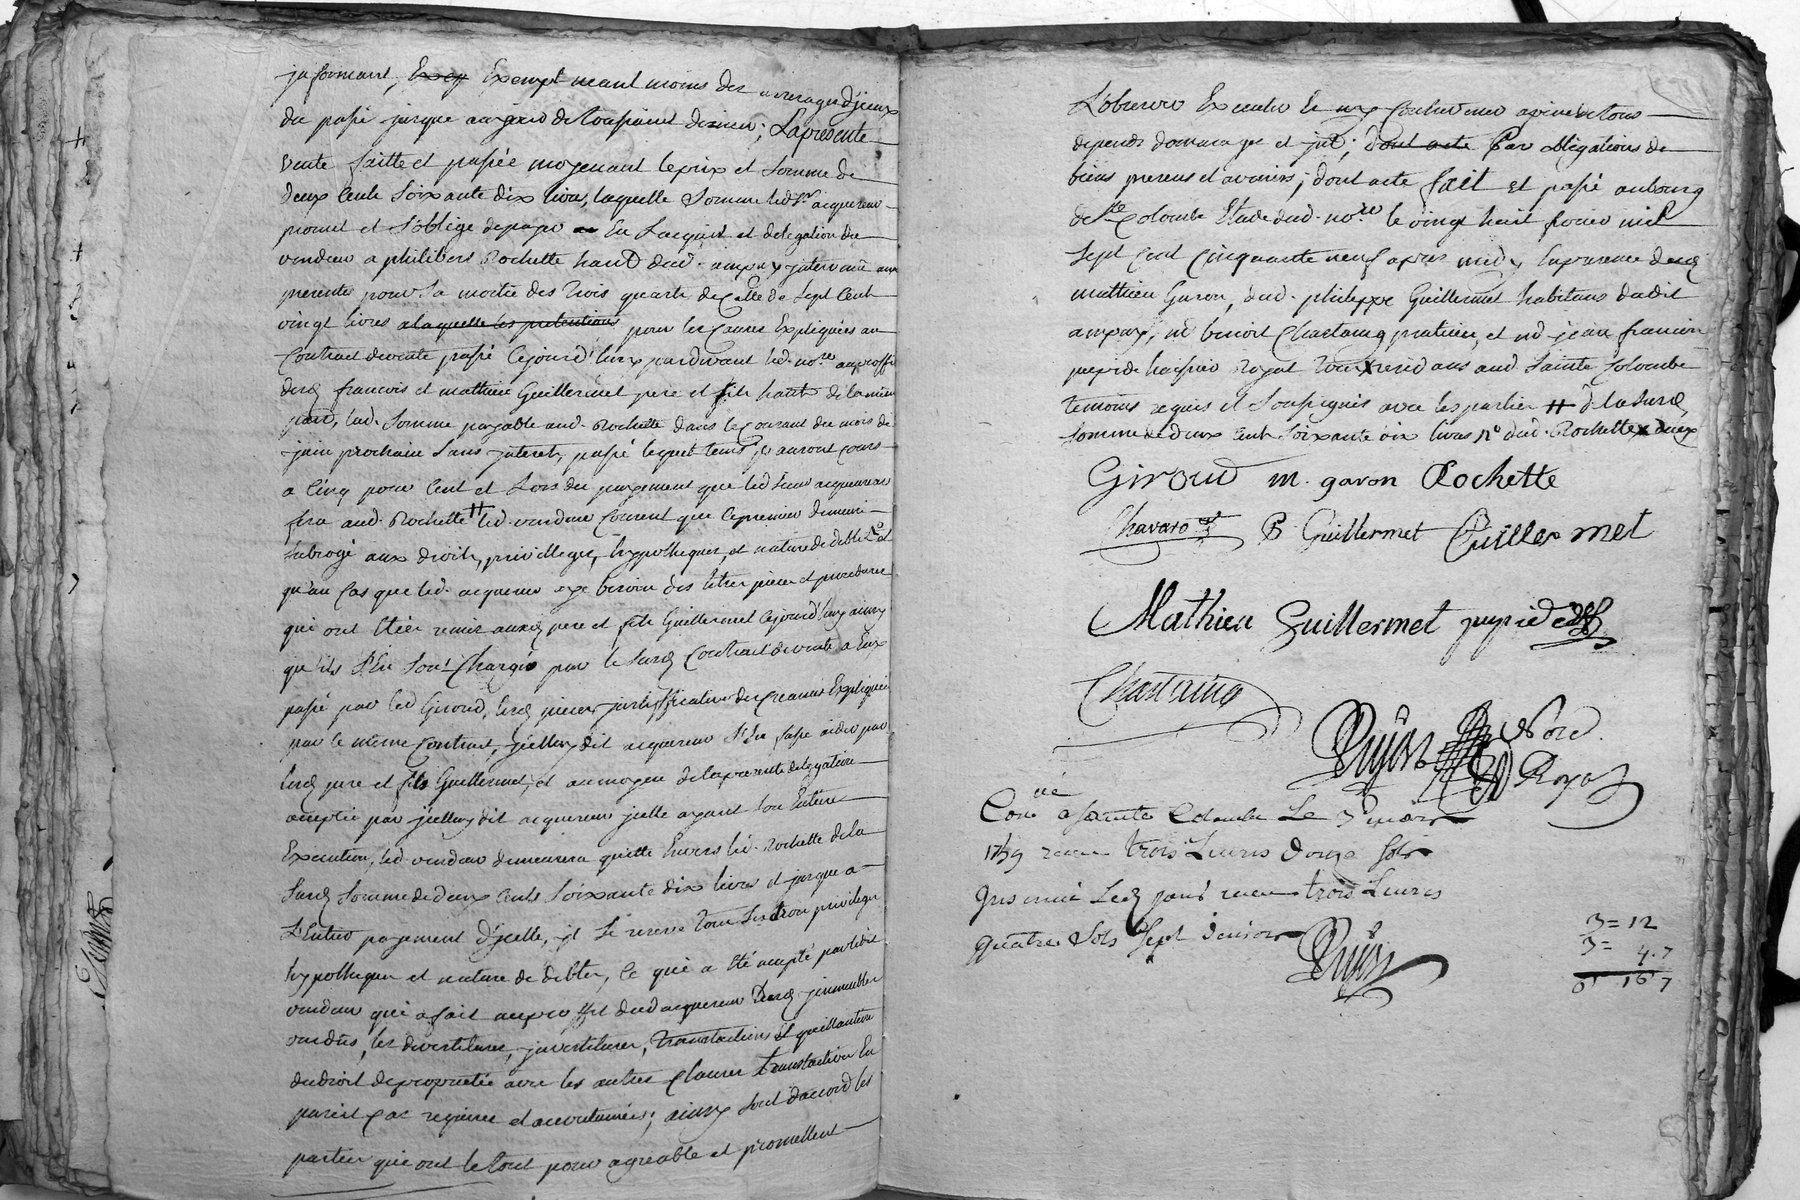 informant, Exep Exempt neant moins des arrerages d'jceux
du passé jusque au jour de Toussaint dernier; Lapresente
vente faitte et passée moyenant leprix et Somme de
deux Cents Soixante dix livres, laquelle Somme led. Sr. acquereur
promet et S'oblige depayer en Lacquit et delegation du
vendeur a philibert Rochette habt dud. ampuy jntervenû aux
presentes pour la moitié des trois quarts de Celle de Sept Cent
vingt livres alaquelle les pretentions pour les Causes Expliquées au
Contract devente passé Cejourd'huy pardevant led. nore. auproffit
desd. francois et mathieu Guillermet pere et fils habts de la meme
part, lad. Somme payable aud. Rochette dans le Courant du mois de
juin prochain Sans jnteret, passé lequel tems js auront Cours
a Cinq pour Cent et Lors du payement que led Sieur acquereur
fera aud. Rochette # led. vendeur Consent que cepremier demeure
Subrogé aux droits, privilleges, hypotheques, et nature de debte et
qu'au Cas que led. acquereur aye besoin des titres pieces et procedures
qui ont étées remis auxd. pere et fils Guillermet Cejourd'huy ainsy
qu'ils S'En Sont Chargés par le Susd. Contract devente a Eux
passé par led Giroud, lesd. pieces justifficatives des Creances Expliquées
par le même Contract, jcelluy dit acquereur S'En fasse aider par
lesd pere et fils Guillermet, et aumoyen delapresente delegation
acceptée par jcelluy dit acquereur jcelle ayant Son Entiere
Execution, led. vendeur demeurera quitte Envers led. Rochette dela
Susd. Somme de deux Cents Soixante dix livres et jusque a
L'Entier payement d'jcelle, jl Se reserve tous Ses droits privileges
hypotheques et nature de debtes, Ce qui a été accepté par ledit
vendeur qui a fait auproffit dud acquereur desd. jmmeubles
vendus, les devestitures, jnvestitures, translactions et quittances
dudroit depropriettée avec les autres Clauses translatives En
pareil Cas requises et accoutumées; ainsy Sont daccord les
parties qui ont le tout pour agreable et promettent
L'observer Executer Et ny Contrevenir apeine de tous
depends dommages et jnt.; dont acte Par obligations de
biens presens et avenirs; dont acte fait et passé aubourg
de Ste Colombe Etude dud. nore le vingt huit fevrier mil
Sept Cent Cinquante neuf apres midy En presence desd.
mathieu Garon, dud. philippe Guillermet habitans dudit
ampuy, md. benoit Chastaing praticien, et md. jean francois
jeupide huissier Royal tous X residans aud Sainte Colombe
temoins requis et Soussignés avec les parties # de lasusd.
Somme de deux Cents Soixante dix livres Rd dud. Rochette X deux
Giroud m. garon Rochette
Chavaro P. Guillermet Guillermet
Mathieu Guillermet
Chastaing
Nore.
Royal
Conlé a Sainte Colombe Le 3 mars
1759 receu trois Livres douze Sols
Jnsinué Led jour receu trois Livres
quatre Sols Sept deniers
3 = 12
3 = 4.7
6 16 7